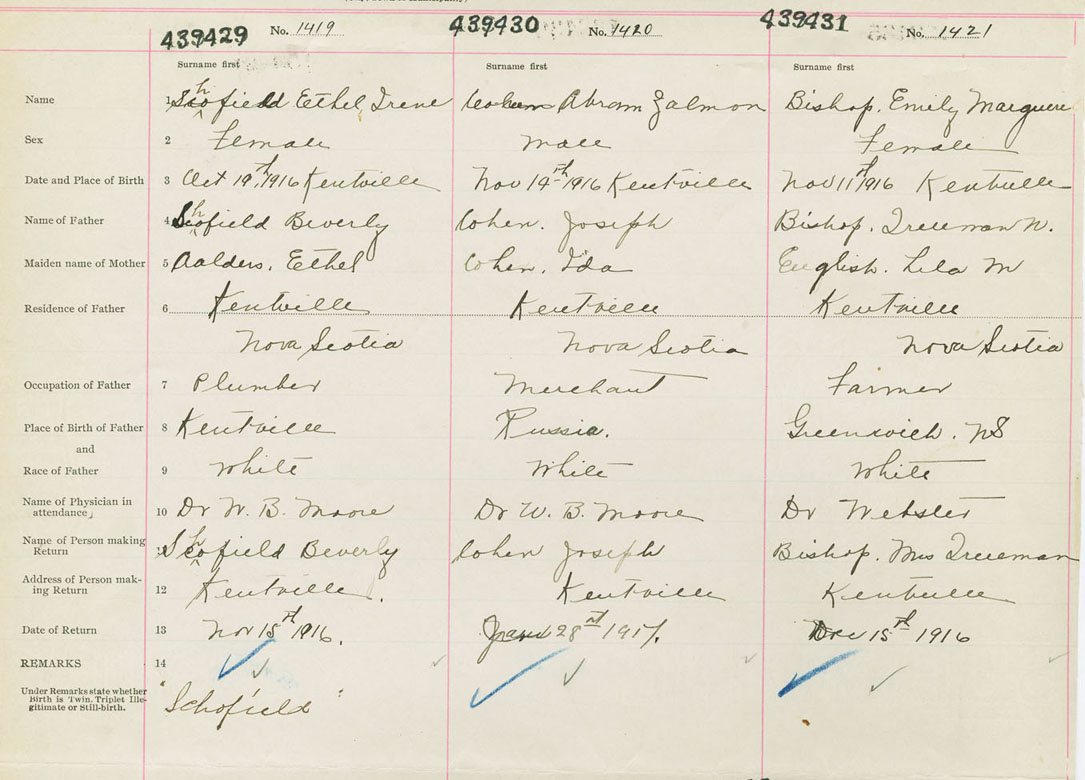 439429 No. 1419 439430 No. 1420 439431 No. 1421
Surname first Surname first Surname first
Name 1 Schofield Ethel Irene Cohen Abram Zalmon Bishop. Emily Margueri
Sex 2 Female Male Female
Date and Place of Birth 3 Oct 19th 1916 Kentville Nov 14th 1916 Kentville Nov 11th 1916 Kentville
Name of Father 4 Schofield Beverly Cohen. Joseph Bishop. Trueman W.
Maiden name of Mother 5 Aalders, Ethel Cohen. Ida English. Lila M
Residence of Father 6 Kentville Kentville Kentville
Nova Scotia Nova Scotia Nova Scotia
Occupation of Father 7 Plumber Merchant Farmer
Place of Birth of Father 8 Kentville Russia. Greenwich. NS
and
Race of Father 9 White White White
Name of Physician in
attendance 10 Dr W. B. Moore Dr W. B. Moore Dr Webster
Name of Person making
Return 11 Schofield Beverly Cohen Joseph Bishop. Mrs Trueman
Address of Person mak-
ing Return 12 Kentville. Kentville Kentville
Date of Return 13 Nov 15th 1916. 28th 1917. Dec 15th 1916
REMARKS 14
Under Remarks state whether
Birth is Twin, Triplet Ille-
gitimate or Still-birth.
"Schofield"